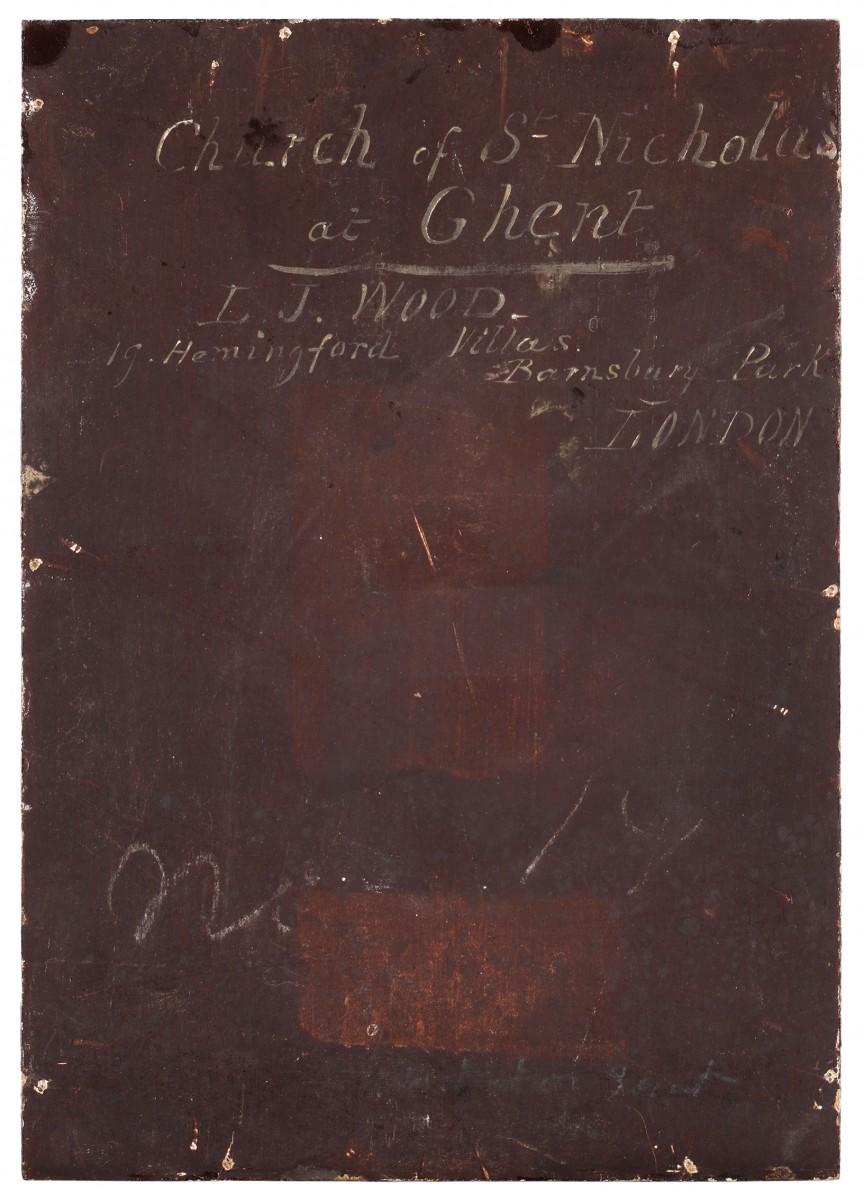 Church of St Nicholas
at Ghent
L. J. WOOD.
19. Hemingford Villas.
Barnsbury Park
LONDON
No 14